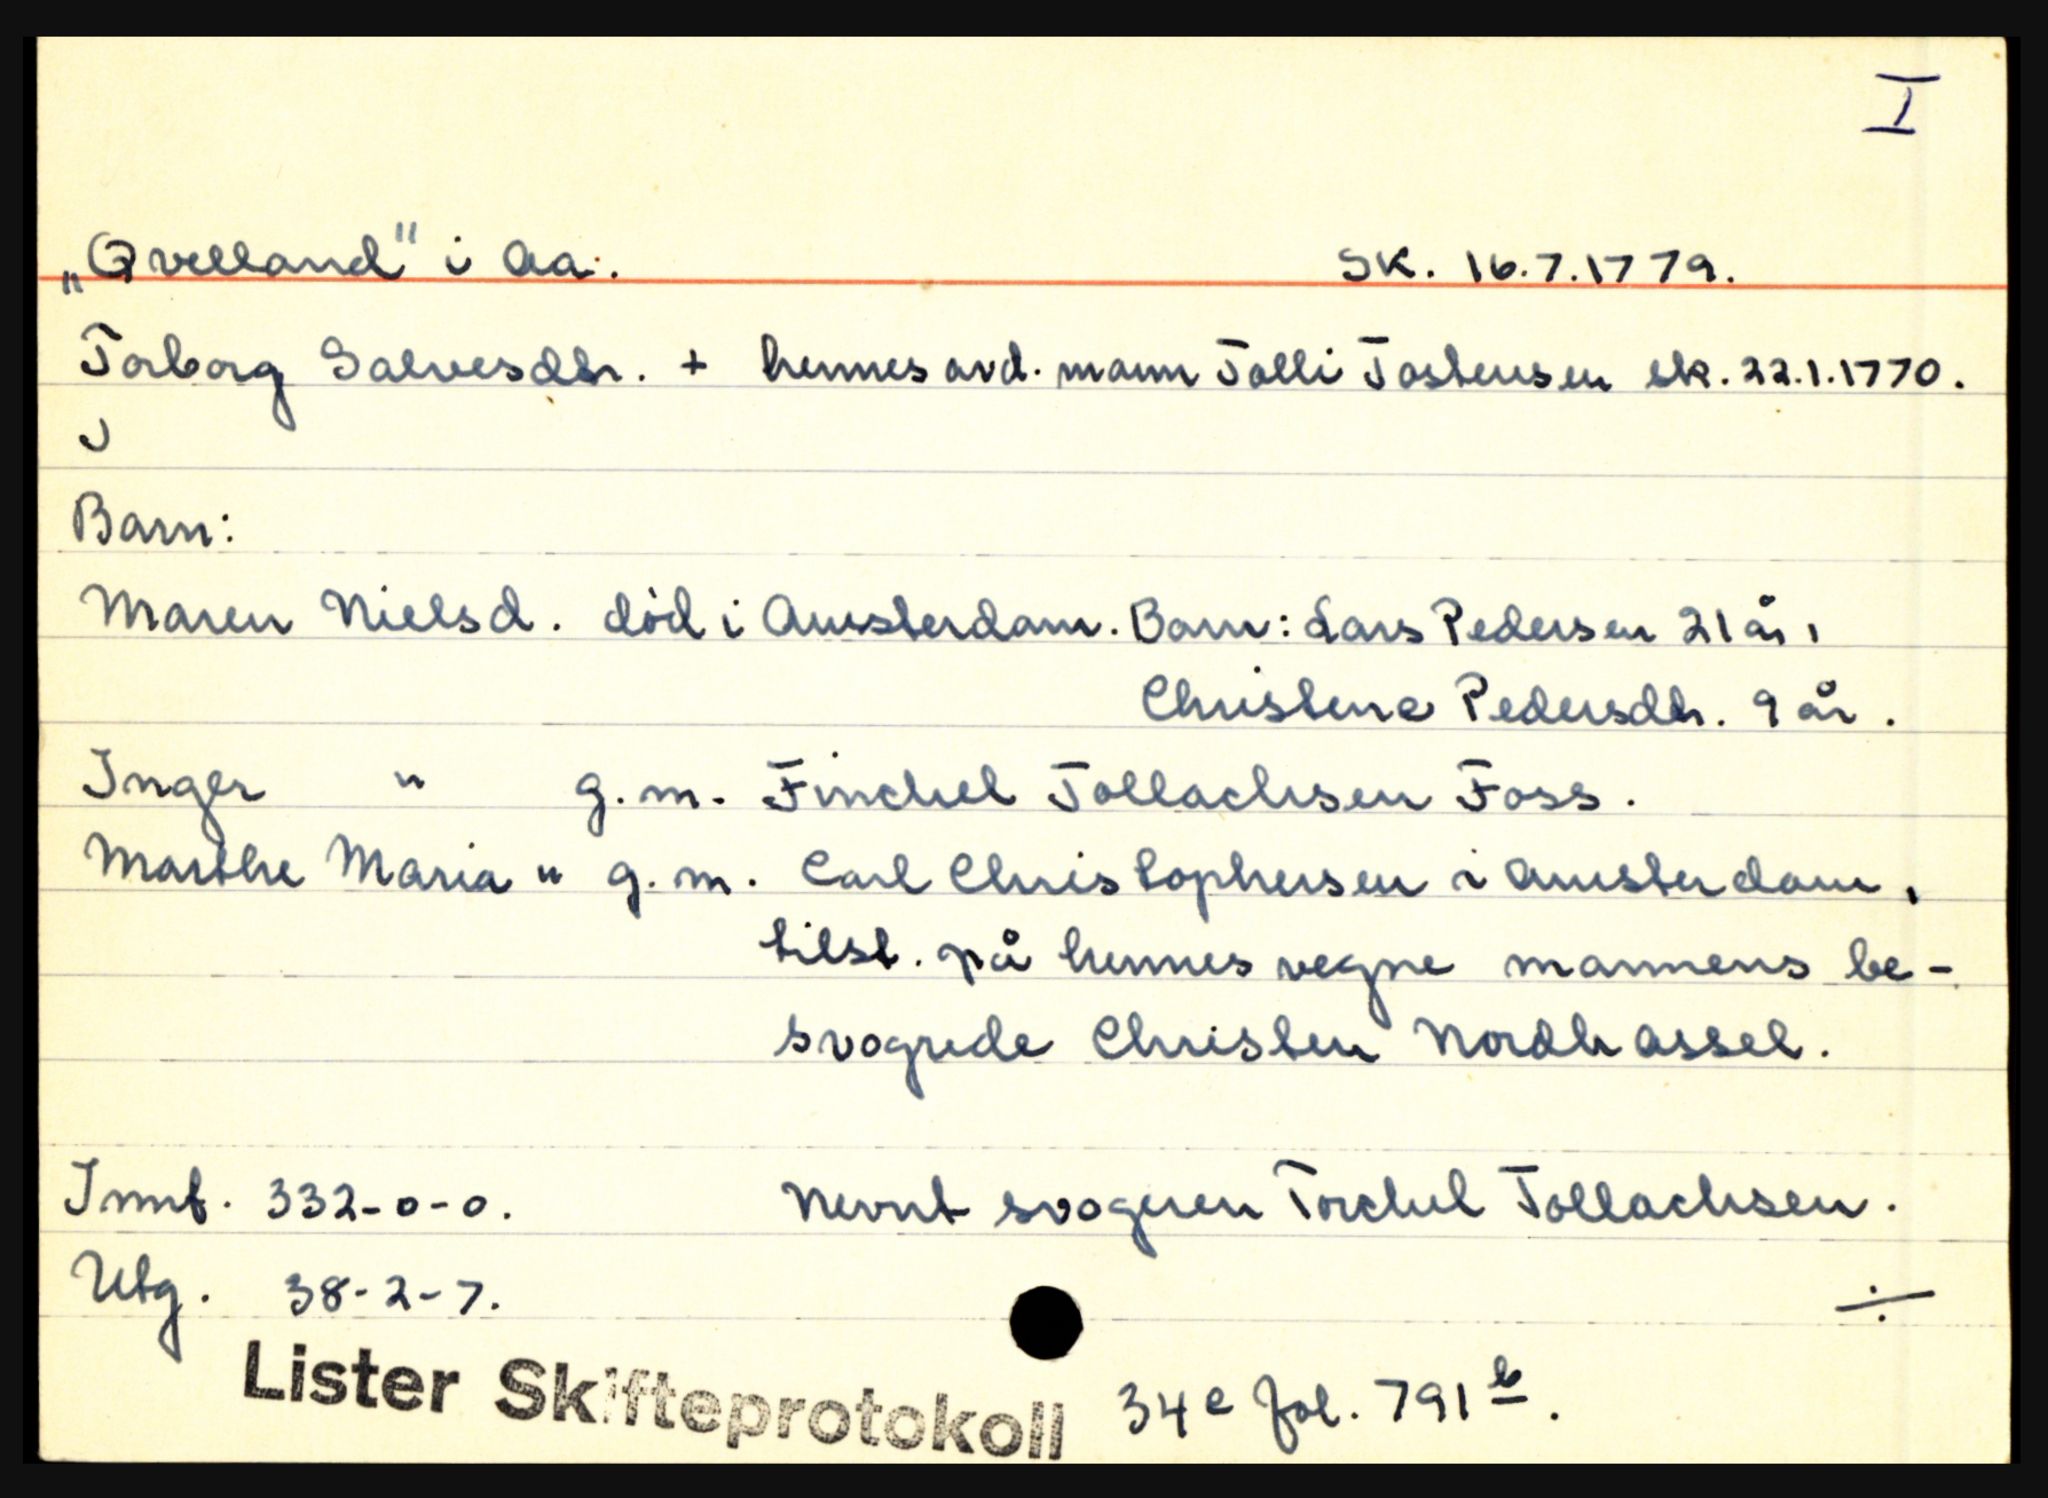 I
„Qvelland" i Aa.. SK. 16.7.1779.
Torborg Salvesdtr. + hennes avd. mann Tolli Tostensen sk. 22.1.1770.
J
Barn:
Maren Nielsd. død i Amsterdam. Barn: Lars Pedersen 21 år,
Christene Pedersdtr. 9 år.
Inger " g.m. Finchel Tollachsen Foss.
Marthe Maria " g.m. Carl Christophersen i Amsterdam,
tilst. på hennes vegne mannens be-
svogrede Christen Nordhassel.
Innt. 332-0-0. Nevnt svogeren Torchel Tollachsen.
Utg. 38-2-7. ÷
Lister Skifteprotokoll 34 e fol. 791 b.